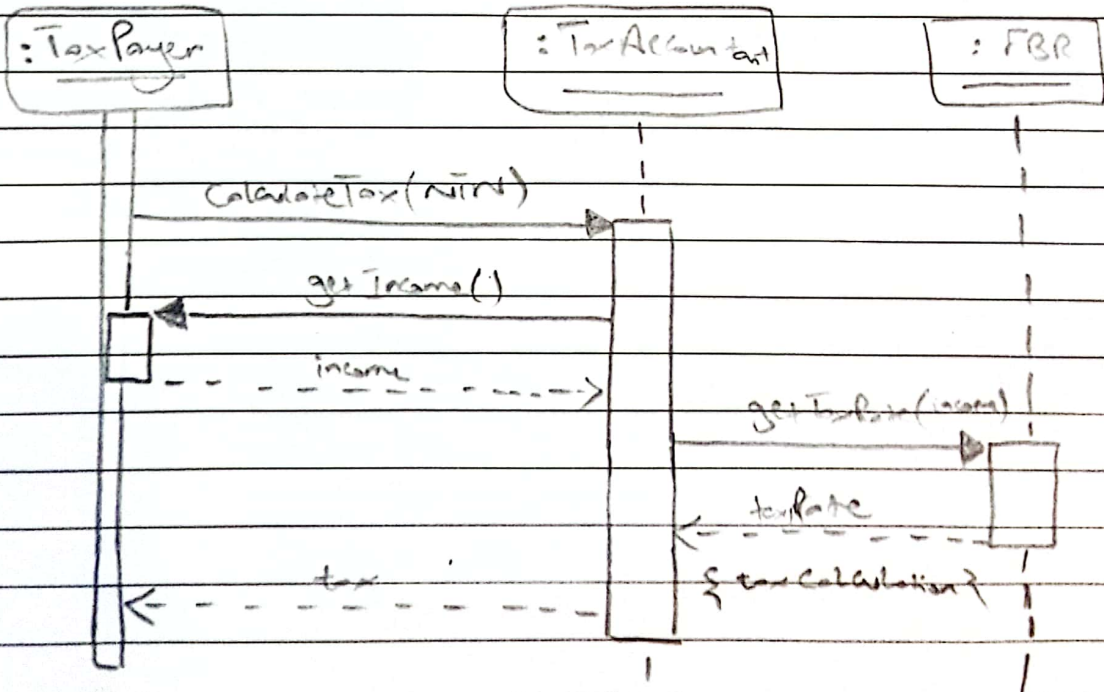 :TaxPayer
:TaxAccountant
: FBR
CalculateTax(NTN)
getIncome()
income
getTaxRate(incom)
taxRate
{ taxCalculation}
tax